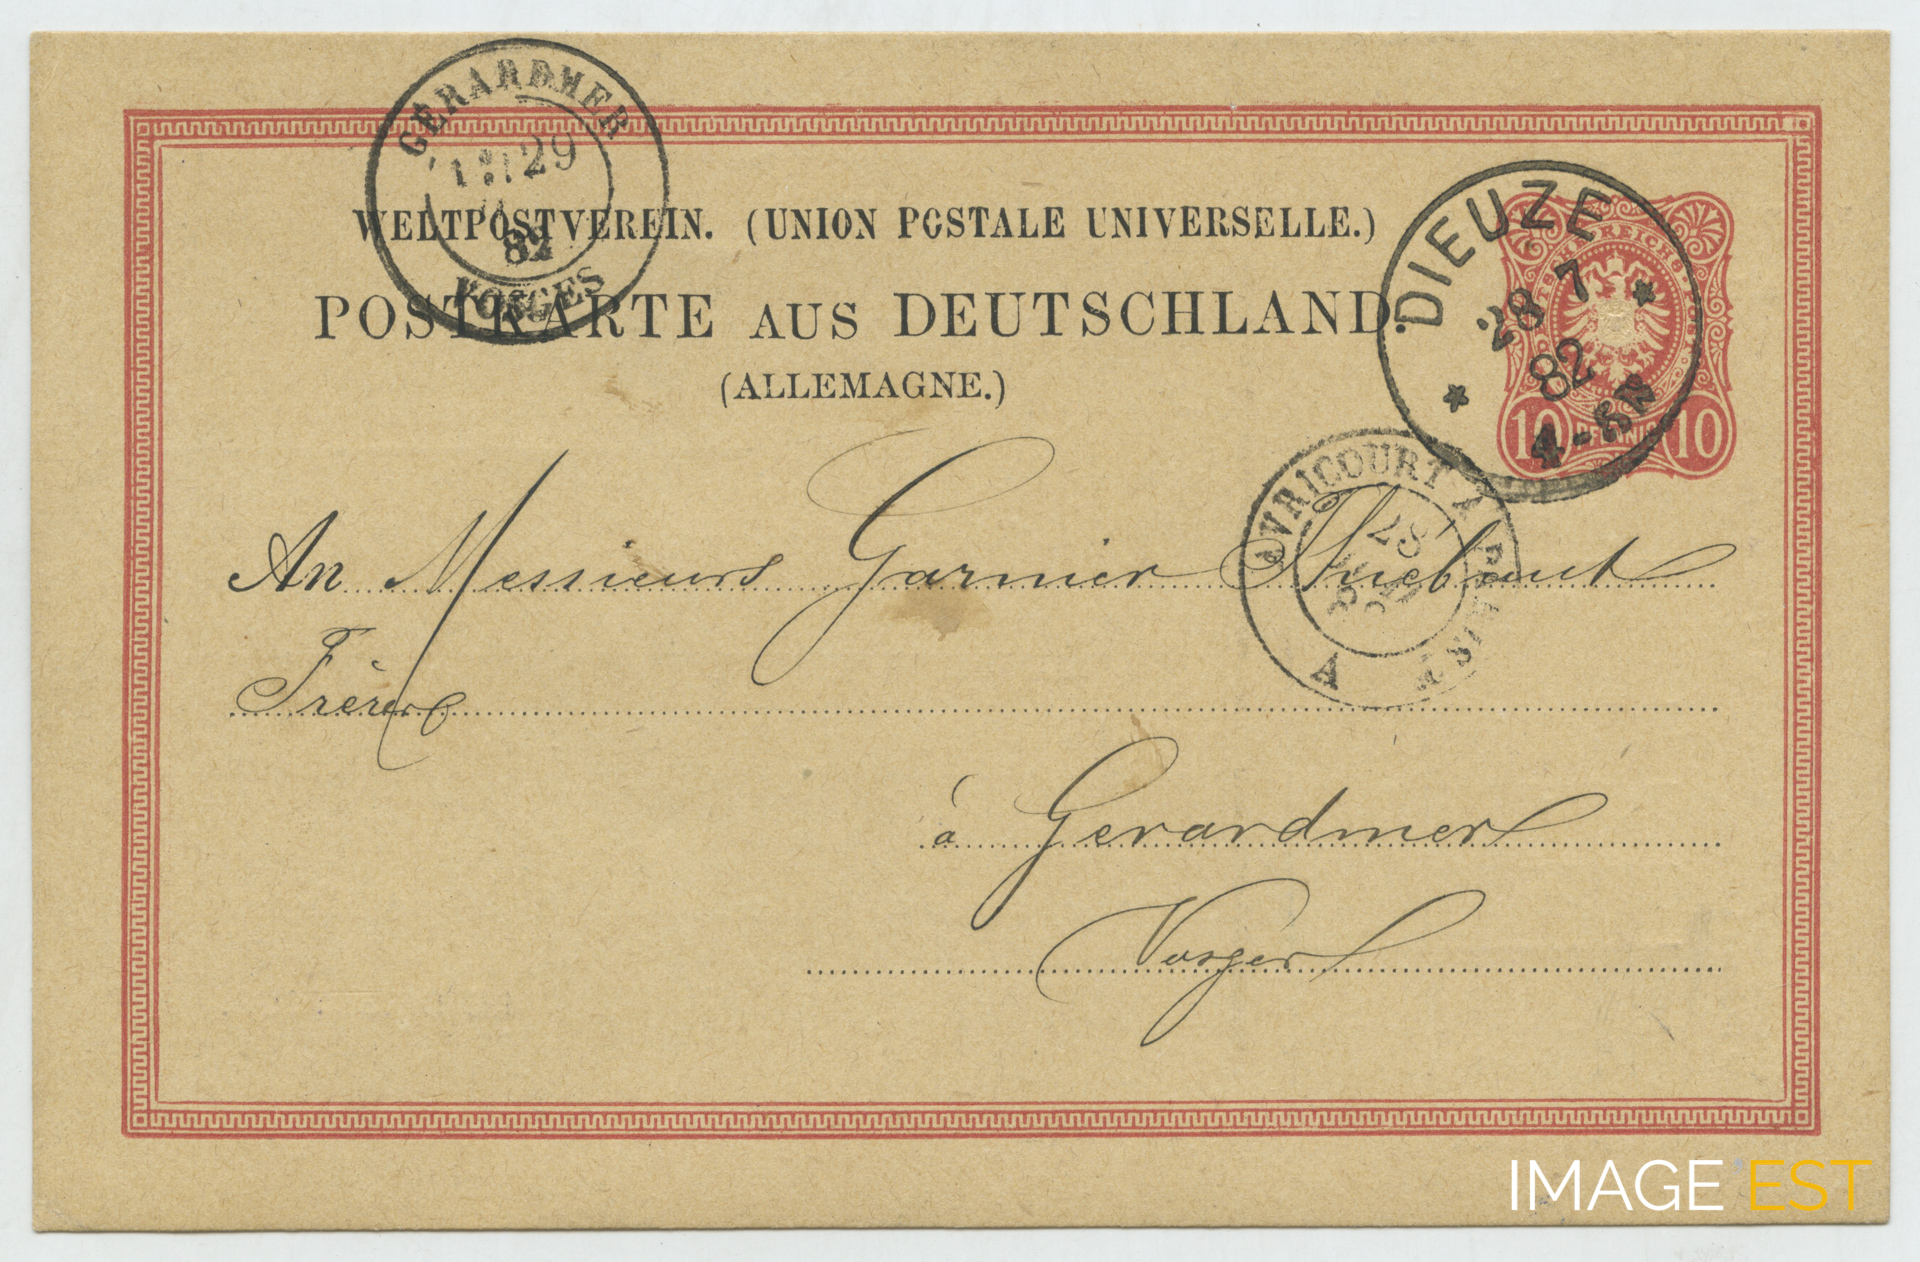 GÉRARDMER
29
82
VOSGES
WELTPOSTVEREIN. (UNION POSTALE UNIVERSELLE.)
POSTKARTE AUS DEUTSCHLAND.
(ALLEMAGNE.)
DIEUZE
28 7
82
4-5N
DEUTSCHE REICHSPOST
10 PFENNIG 10
AVRICOURT A PARIS
28
A
An Messieurs Garnier Thiebaut
Frères
à Gerardmer
Vosges
IMAGE'EST